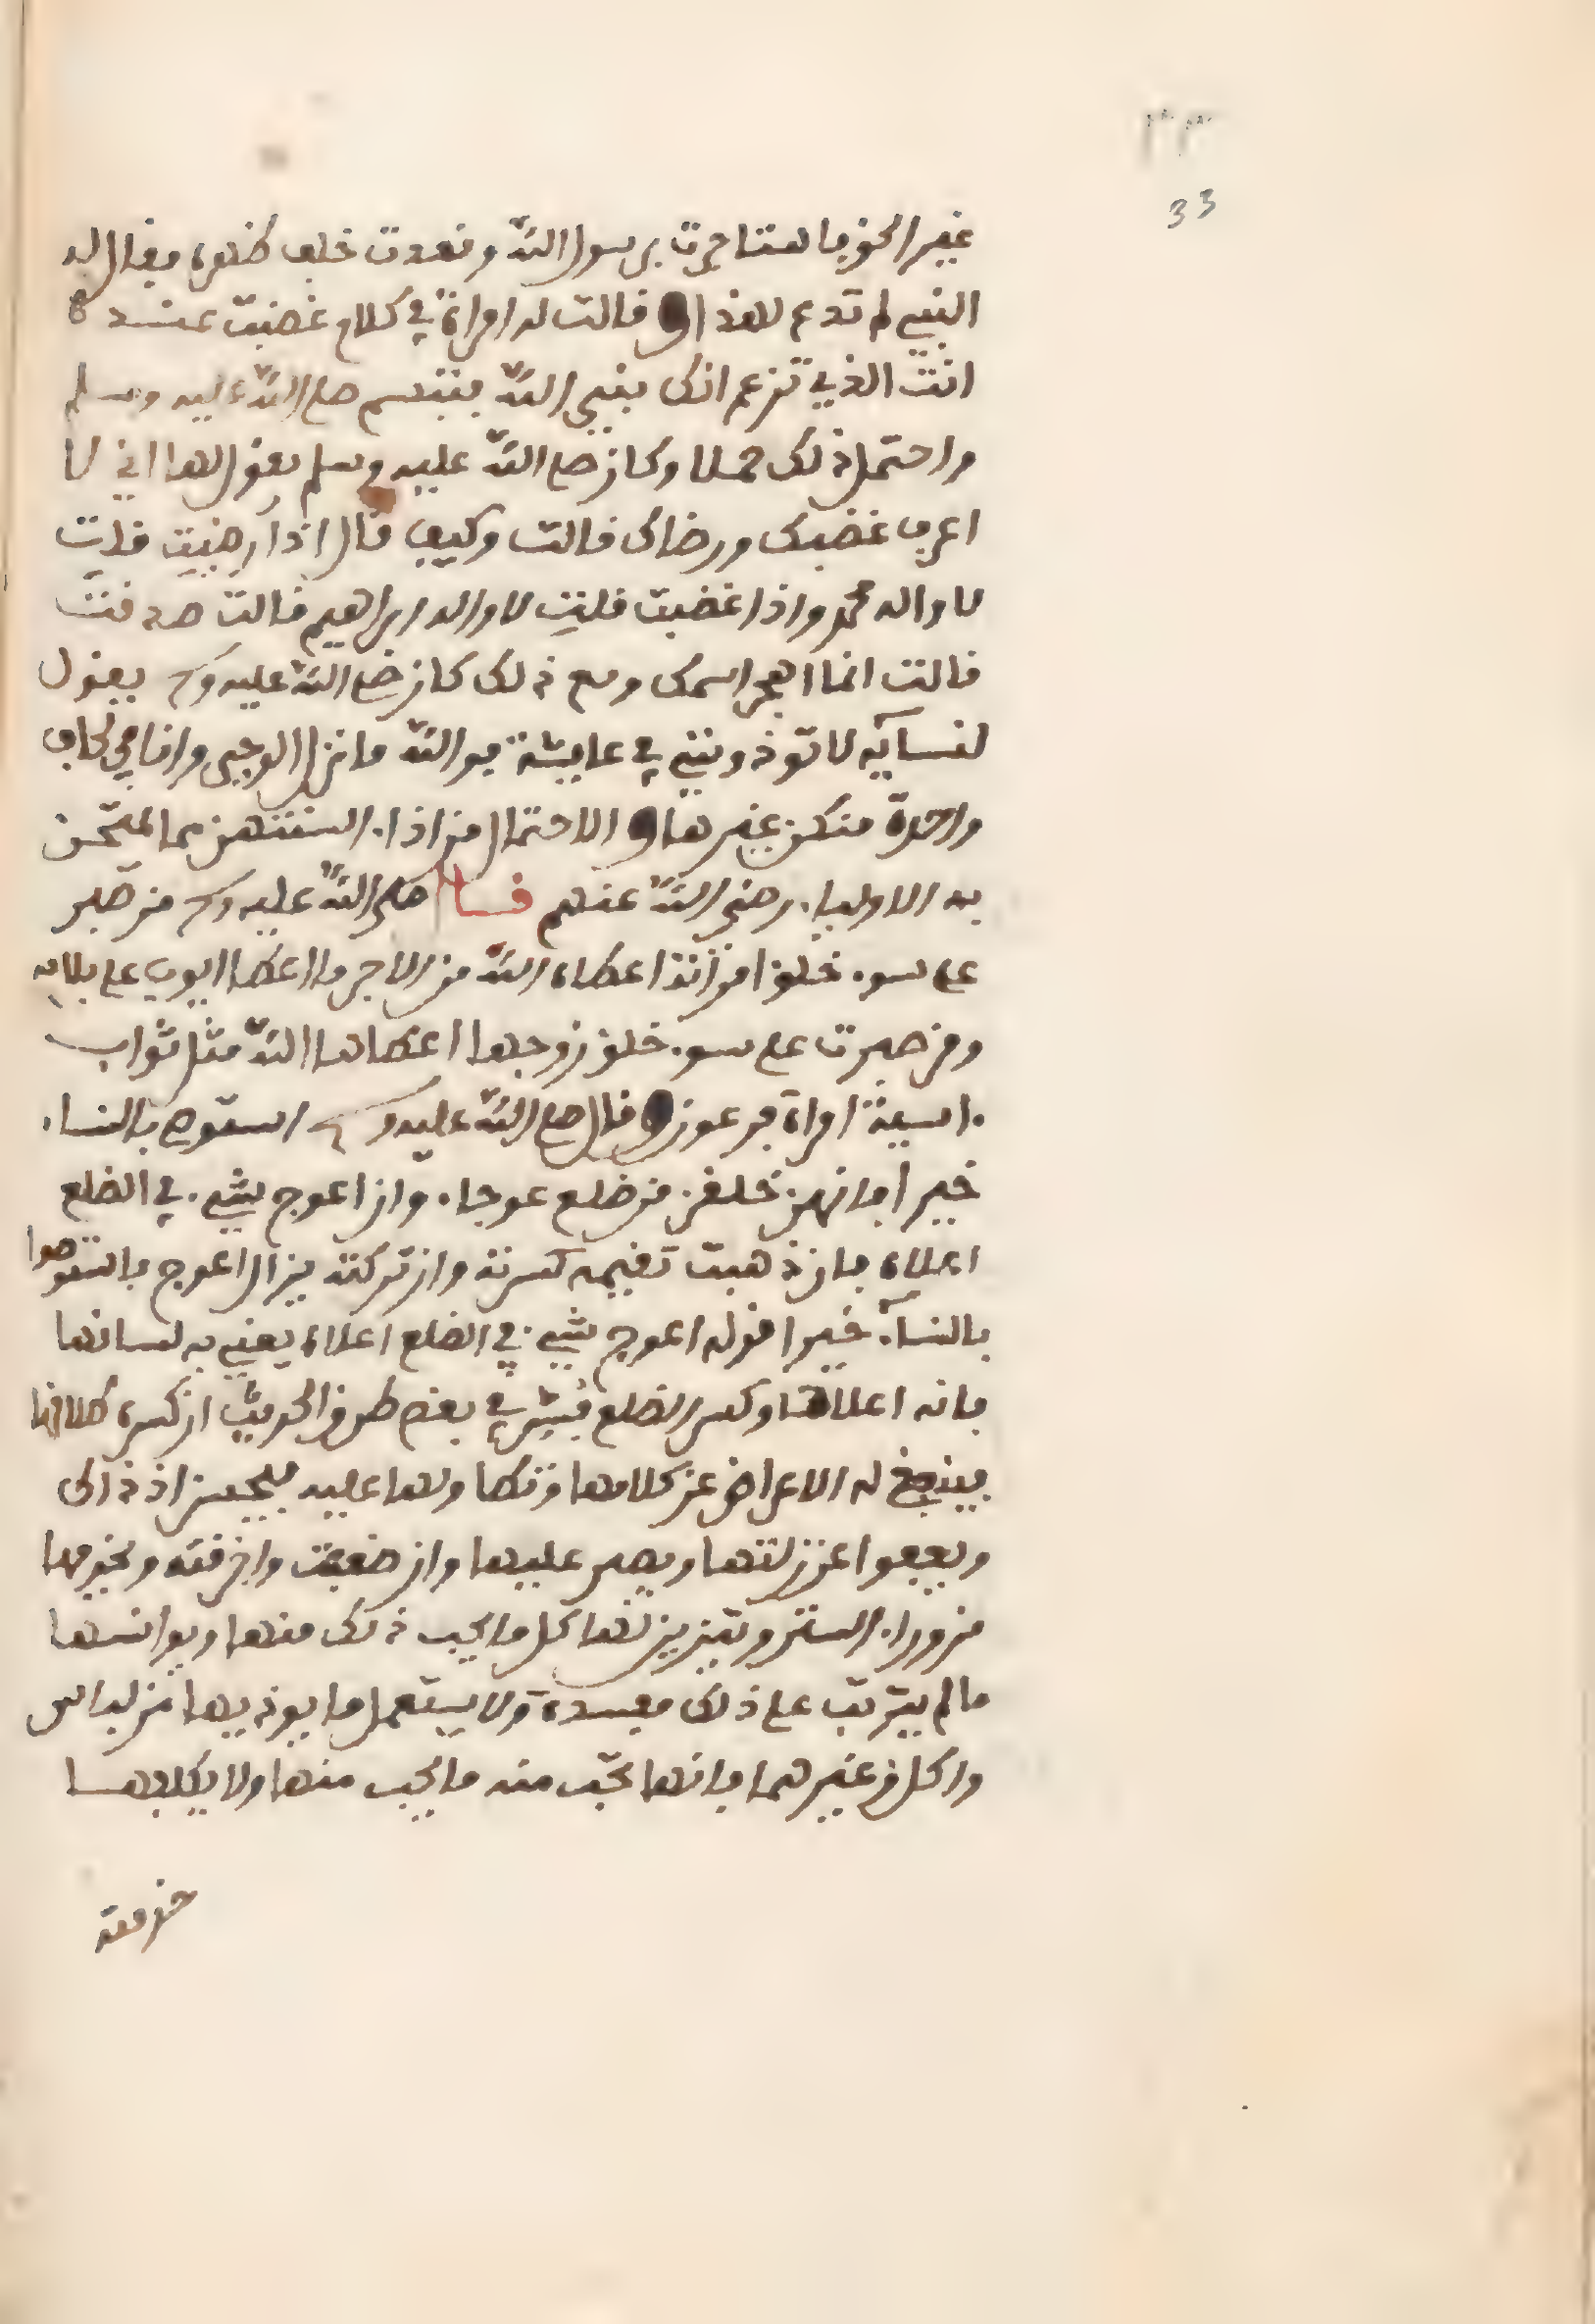 ٣٣
33
غير الحق فاستاجرت برسول الله وقعدت خلف ظهره فقال له
النبي لم تدع لهذا و قالت له امراة في كلام غضبت عنده
انت الذي تزعم انك نبي الله فتبسم صلى الله عليه وسلم
واحتمل ذلك حملا وكان صلى الله عليه وسلم يقول لها اني لا
اعرف غضبك ورضاك قالت وكيف قال اذا رضيت قلت
لا واله محمد واذا غضبت قلت لا واله ابراهيم قالت صدقت
قالت انما اهجر اسمك ومع ذلك كان صلى الله عليه وسلم يقول
لنسايه لا توذونني في عايشة فوالله ما نزل الوحي وانا في لحاف
واحدة منكن غيرها و الاحتمال من اذا السنتهن مما امتحن
به الاوليا رضي الله عنهم قال صلى الله عليه وسلم من صبر
على سوء خلق امراته اعطاه الله من الاجر ما اعطا ايوب على بلايه
ومن صبرت على سوء خلق زوجها اعطاها الله مثل ثواب
اسية امراة فرعون و قال صلى الله عليه وسلم استوصوا بالنساء
خيرا فانهن خلقن من ضلع عوجاء وان اعوج شيء في الضلع
اعلاه فان ذهبت تقيمه كسرته وان تركته يزال اعوج فاستوصوا
بالنساء خيرا قوله اعوج شيء في الضلع اعلاه يعني به لسانها
فانه اعلاها وكسر الضلع فسر في بعض طرق الحديث ان كسره طلاقها
فينبغي له الاعراض عن كلامها وتطاولها عليه فيحسن اذ ذاك
ويعفوا عن زلتها ويصبر عليها وان ضعفت واخرقته ويخدمها
من وراء الستر ويتزين لها كل ما يحب ذلك منها ويوانسها
ما لم يترتب على ذلك مفسدة ولا يستعمل ما يوذيها من لباس
واكل وغيرهما فانها تحب منه ما يحب منها ولا يكلفها
خدمته